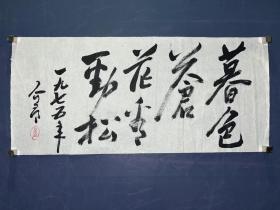 暮色
蒼
茫看
勁松
一九七五年